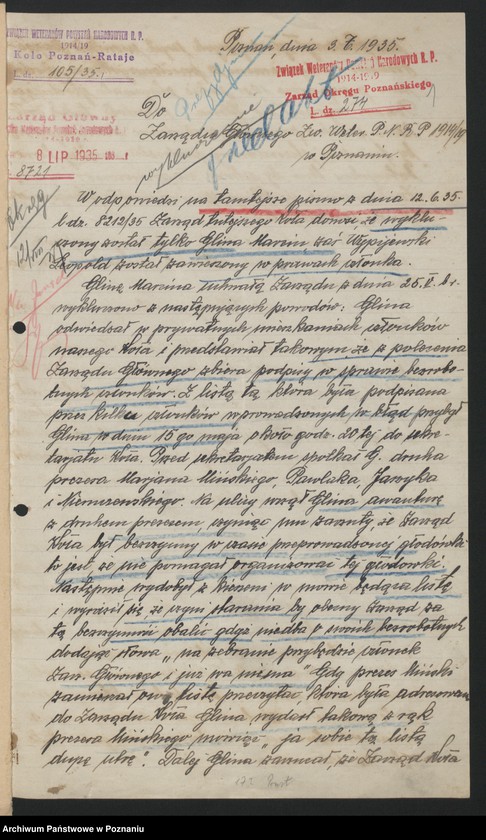 ZWIĄZEK WETERANÓW POWSTAŃ NARODOWYCH R. P.
1914/19
Koło Poznań-Rataje
L. dz. 105/35.
Poznań, dnia 3.7.1935.
Związek Weteranów Powstań Narodowych R. P.
1914-1919
Zarząd Okręgu Poznańskiego
L. dz. 274
Zarząd Główny
8 LIP. 1935
8721
Do
Zarządu Głównego Zw. Weter. P. N. R. P. 1914/19
w Poznaniu.
W odpowiedzi na tamtejsze pismo z dnia 12.6.35.
l. dz. 8212/35 Zarząd tutejszego Koła donosi że wyklu-
czony został tylko Glina Marcin zaś Wypijewski
Leopold został zawieszony w prawach członka.
Glinę Marcina uchwałą Zarządu z dnia 25. b. r.
wykluczono z następujących powodów: Glina
odwiedzał w prywatnych mieszkaniach członków
naszego Koła i przedstawiał takowym że z polecenia
Zarządu Głównego zbiera podpisy w sprawie bezrobo-
tnych członków. Z listą tą która była podpisana
przez kilku członków wprowadzonych w błąd przybył
Glina w dniu 15 go maja około godz. 20 tej do sekre-
tarjatu Koła. Przed sekretarjatem spotkał G. druha
prezesa Marjana Mińskiego, Pawlaka, Jarzyka
i Niemerzewskiego. Na ulicy wszął Glina awanturę
z druhem prezesem czyniąc mu zarzuty, że Zarząd
Koła był bezczynny w czasie przeprowadzonej głodówki
to jest że nie pomagał organizować tej głodówki.
Następnie wydobył z kieszeni w mowie będącą listę
i wyraził się że czyni starania by obecny Zarząd za
tą bezczynność obalić gdyż niedba o swoich bezrobotnych
dodając słowa „na zebranie przybędzie członek
Zarz. Głównego i już was niema" Gdy prezes Miński
zamierzał ową listę przeczytać, która była adresowana
do Zarządu Koła Glina wydarł takową z rąk
prezesa Mińskiego mówiąc „ja sobie tą listą
dupę utrę". Dalej Glina zarzucał, że Zarząd Koła
Archiwum Państwowe w Poznaniu